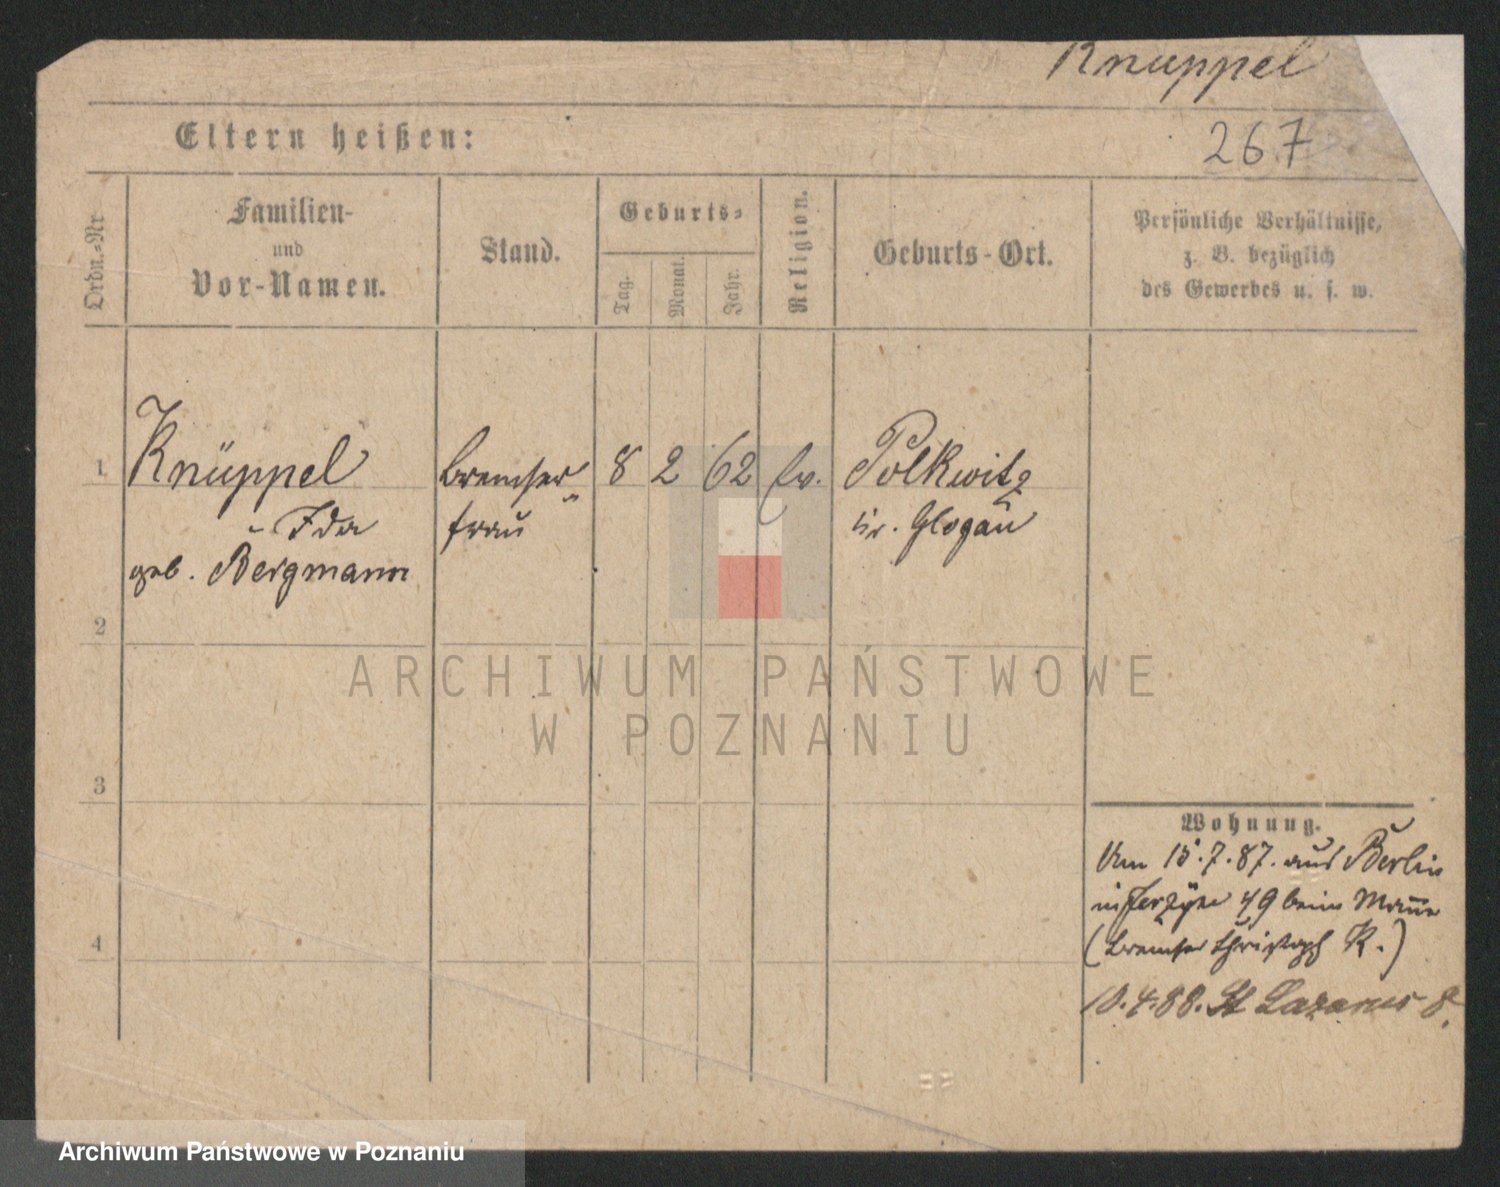 Knüppel
267
Eltern heißen:
Ordn.-Nr
Familien-
und
Vor-Namen.
Stand.
Geburts-
Tag.
Monat.
Jahr.
Religion.
Geburts-Ort.
Persönliche Verhältnisse,
z. B. bezüglich
des Gewerbes u. s. w.
1. Knüppel Bremser 8 2 62 Ev. Polkwitz
Ida frau Kr. Glogau
geb. Bergmann
2
3
4
Wohnung.
Am 15.7.87. aus Berlin
in Jerzyce 49 beim Manne
(Bremser Christoph K.)
10.4.88. St Lazarus 8.
ARCHIWUM PAŃSTWOWE
W POZNANIU
Archiwum Państwowe w Poznaniu